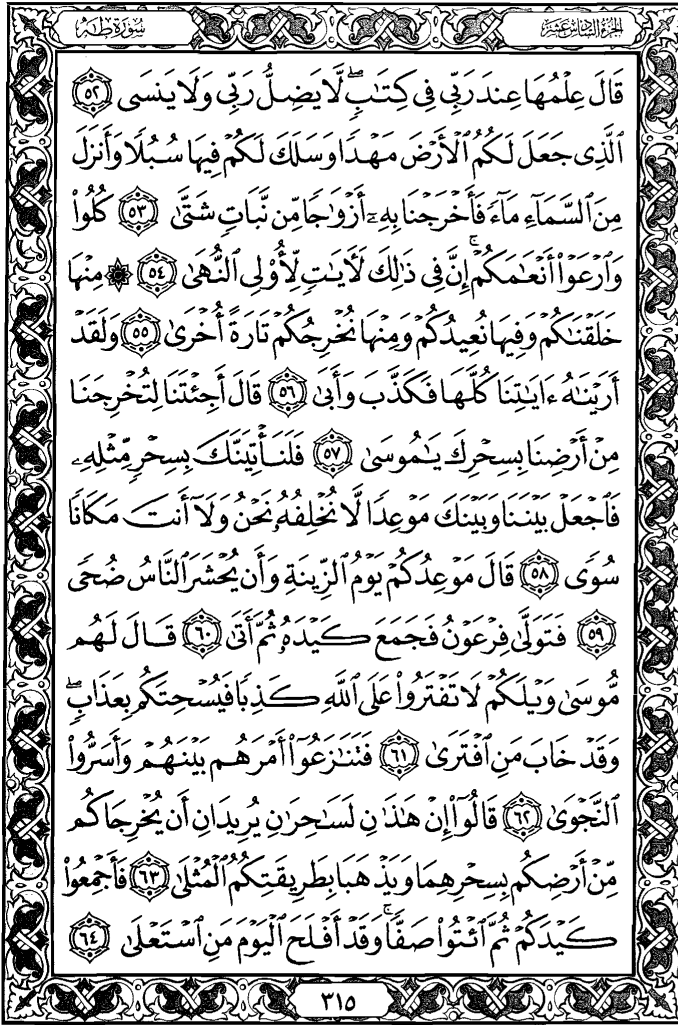 الجزء السادس عشر
سورة طه
قَالَ عِلْمُهَا عِندَ رَبِّي فِي كِتَٰبٖۖ لَّا يَضِلُّ رَبِّي وَلَا يَنسَى ٥٢
ٱلَّذِي جَعَلَ لَكُمُ ٱلْأَرْضَ مَهْدٗا وَسَلَكَ لَكُمْ فِيهَا سُبُلٗا وَأَنزَلَ
مِنَ ٱلسَّمَآءِ مَآءٗ فَأَخْرَجْنَا بِهِۦٓ أَزْوَٰجٗا مِّن نَّبَاتٖ شَتَّىٰ ٥٣ كُلُوا۟
وَٱرْعَوْا۟ أَنْعَٰمَكُمْۚ إِنَّ فِي ذَٰلِكَ لَأٓيَٰتٖ لِّأُو۟لِي ٱلنُّهَىٰ ٥٤ ۞ مِنْهَا
خَلَقْنَٰكُمْ وَفِيهَا نُعِيدُكُمْ وَمِنْهَا نُخْرِجُكُمْ تَارَةً أُخْرَىٰ ٥٥ وَلَقَدْ
أَرَيْنَٰهُ ءَايَٰتِنَا كُلَّهَا فَكَذَّبَ وَأَبَىٰ ٥٦ قَالَ أَجِئْتَنَا لِتُخْرِجَنَا
مِنْ أَرْضِنَا بِسِحْرِكَ يَٰمُوسَىٰ ٥٧ فَلَنَأْتِيَنَّكَ بِسِحْرٖ مِّثْلِهِۦ
فَٱجْعَلْ بَيْنَنَا وَبَيْنَكَ مَوْعِدٗا لَّا نُخْلِفُهُۥ نَحْنُ وَلَآ أَنتَ مَكَانٗا
سُوٗى ٥٨ قَالَ مَوْعِدُكُمْ يَوْمُ ٱلزِّينَةِ وَأَن يُحْشَرَ ٱلنَّاسُ ضُحٗى
٥٩ فَتَوَلَّىٰ فِرْعَوْنُ فَجَمَعَ كَيْدَهُۥ ثُمَّ أَتَىٰ ٦٠ قَالَ لَهُم
مُّوسَىٰ وَيْلَكُمْ لَا تَفْتَرُوا۟ عَلَى ٱللَّهِ كَذِبٗا فَيُسْحِتَكُم بِعَذَابٖۖ
وَقَدْ خَابَ مَنِ ٱفْتَرَىٰ ٦١ فَتَنَٰزَعُوٓا۟ أَمْرَهُم بَيْنَهُمْ وَأَسَرُّوا۟
ٱلنَّجْوَىٰ ٦٢ قَالُوٓا۟ إِنْ هَٰذَٰنِ لَسَٰحِرَٰنِ يُرِيدَانِ أَن يُخْرِجَاكُم
مِّنْ أَرْضِكُم بِسِحْرِهِمَا وَيَذْهَبَا بِطَرِيقَتِكُمُ ٱلْمُثْلَىٰ ٦٣ فَأَجْمِعُوا۟
كَيْدَكُمْ ثُمَّ ٱئْتُوا۟ صَفّٗاۚ وَقَدْ أَفْلَحَ ٱلْيَوْمَ مَنِ ٱسْتَعْلَىٰ ٦٤
٣١٥